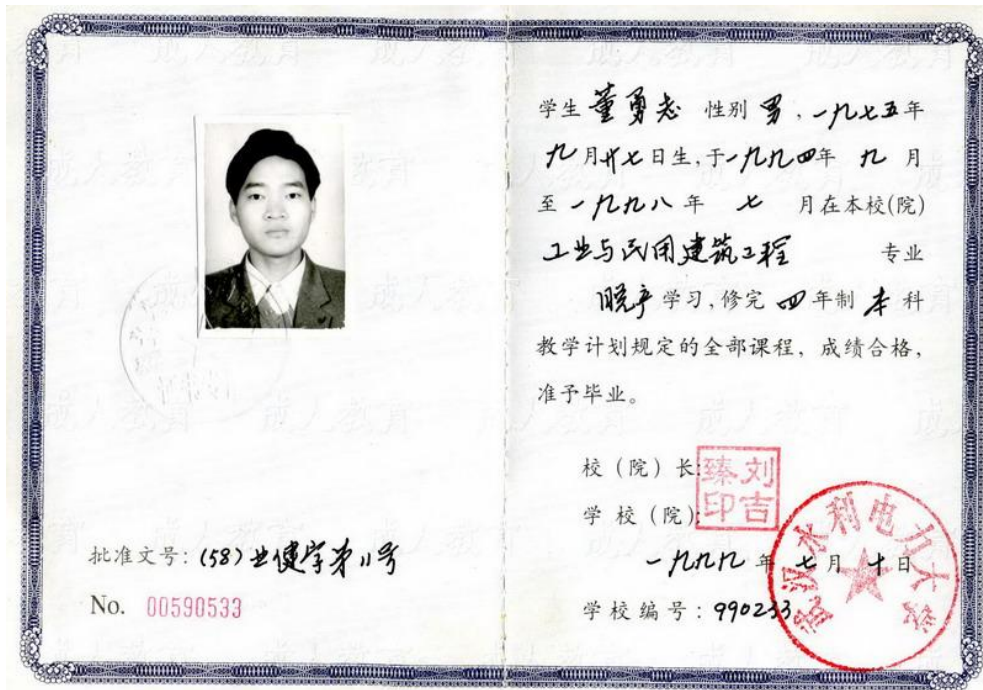 批准文号：(58)业健字第11号
No. 00590533
学生 董勇志 性别 男，一九七五年
九月廿七日生，于一九九四年 九 月
至 一九九八 年 七 月在本校(院)
工业与民用建筑工程 专业
脱产 学习，修完 四 年制 本 科
教学计划规定的全部课程，成绩合格，
准予毕业。
校（院）长：
刘吉臻印
学 校（院）：
一九九九年 七 月 十 日
学校编号：990233
武汉水利电力大学
成人教育